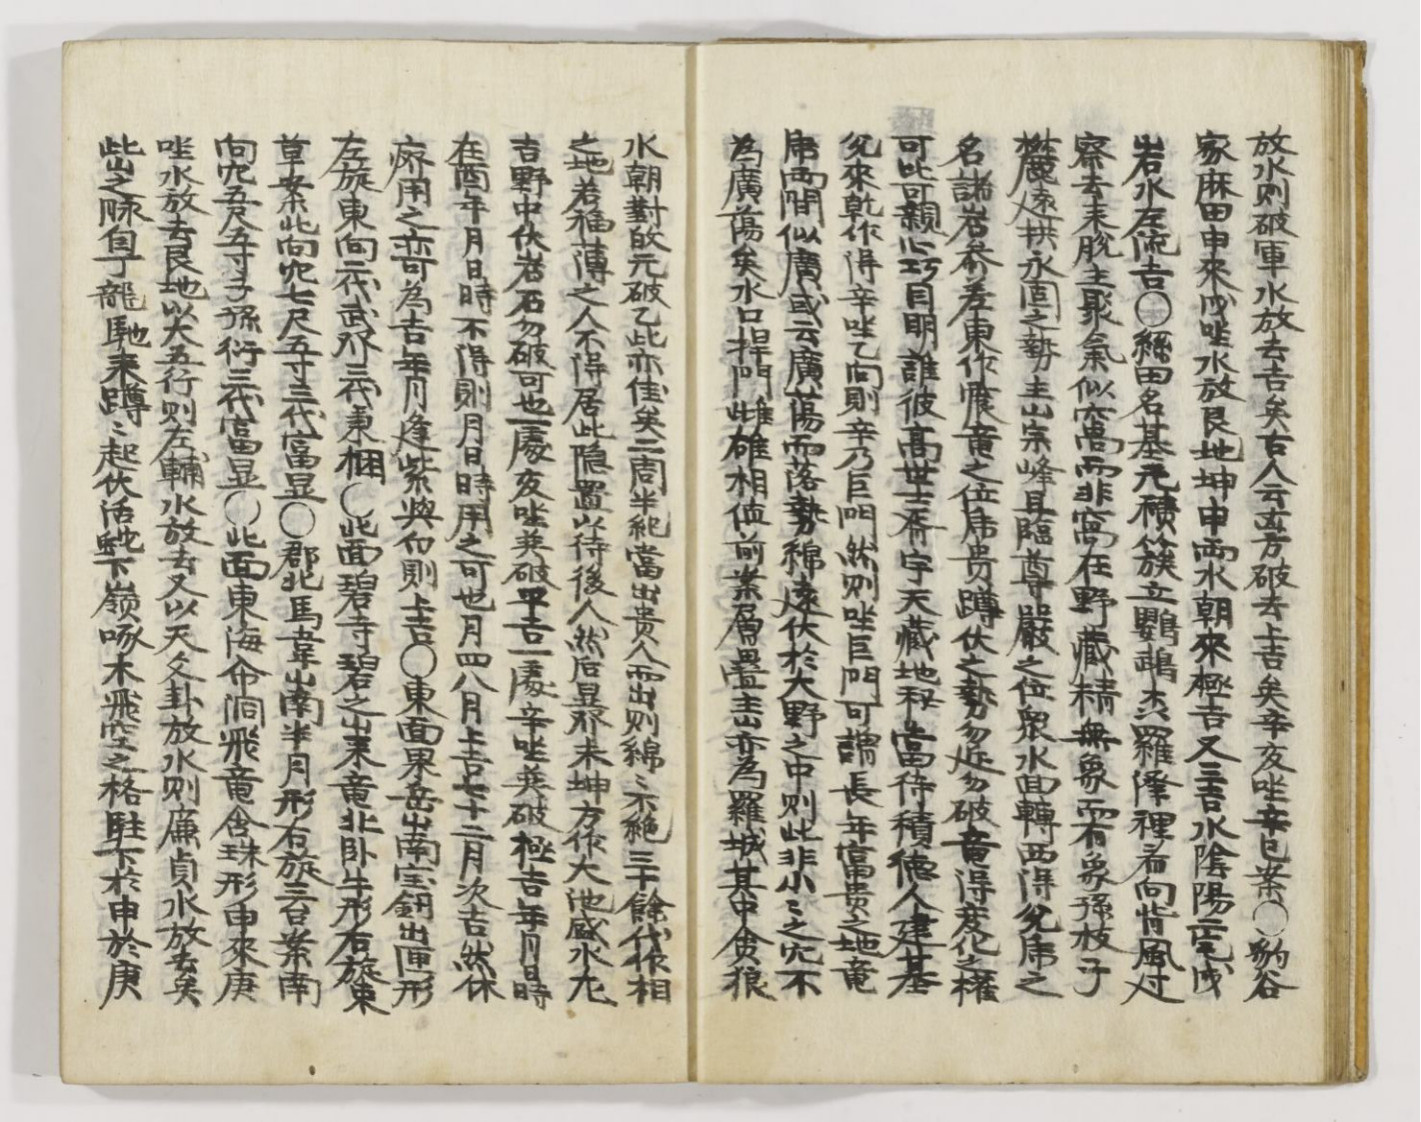 放水則破軍水放去吉矣古人云吉方破去上吉矣辛亥坐辛巳案〇豹谷
家麻田申來戌坐水放艮地坤申両水朝來極吉又三吉水陰陽一宅戌
岩水左流吉〇經田名基元積簇立鸚鵡 羅澤裡看向背風过
察去來脫主聚氣似窩而非窩在野藏精無象而有象孫枝子
麓遠拱永固之勢主山宗峰耳臨尊嚴之位衆水面轉西得兌庚之
名諸岩參差東作震竜之位庚贵蹲伏之勢勿近勿破竜得変化之權
可比可親心巧目明誰彼高世士 字天藏地秘當待積德人建基
兌來乾作得辛坐乙向則辛乃巨門然則坐巨門可謂長年富貴之地竜
庚両間似廣或云廣蕩而落勢綿遠伏於大野之中則此非小〻之穴不
為廣蕩矣水口捍門雌雄相値前案層疊主山亦為羅城其中貪狼
水朝對破元破乙此亦佳矣二周半紀當出贵人而出則綿〻不絶三十餘代作相
之地若福薄之人不得居此隐置以待後人然后显發未坤方作大池盛水尢
吉野中伏岩石勿破可也一處亥坐英破平吉一處辛坐英破極吉年月日時
在酉年月日時不得則月日時用之可也月四八月上吉七十二月次吉然休
廃用之亦可為吉年月逢紫與白則上吉〇東面果岳山南宝釼出匣形
左旋東向二代武發三代秉樞〇此面碧寺碧之山来竜北卧牛形右旋東
草案此向穴七尺五寸三代富显〇郡北馬韋山南半月形右旋三台案南
向穴五尺五寸子孫衍三代富显〇此面東海命洞飛竜含珠形申來庚
坐水放去艮地以大五行則左輔水放去又以天爻卦放水則廉貞水放去矣
此山之脉自丁龍馳来蹲〻起伏活虵下嶺啄木飛空之格駐下於申於庚